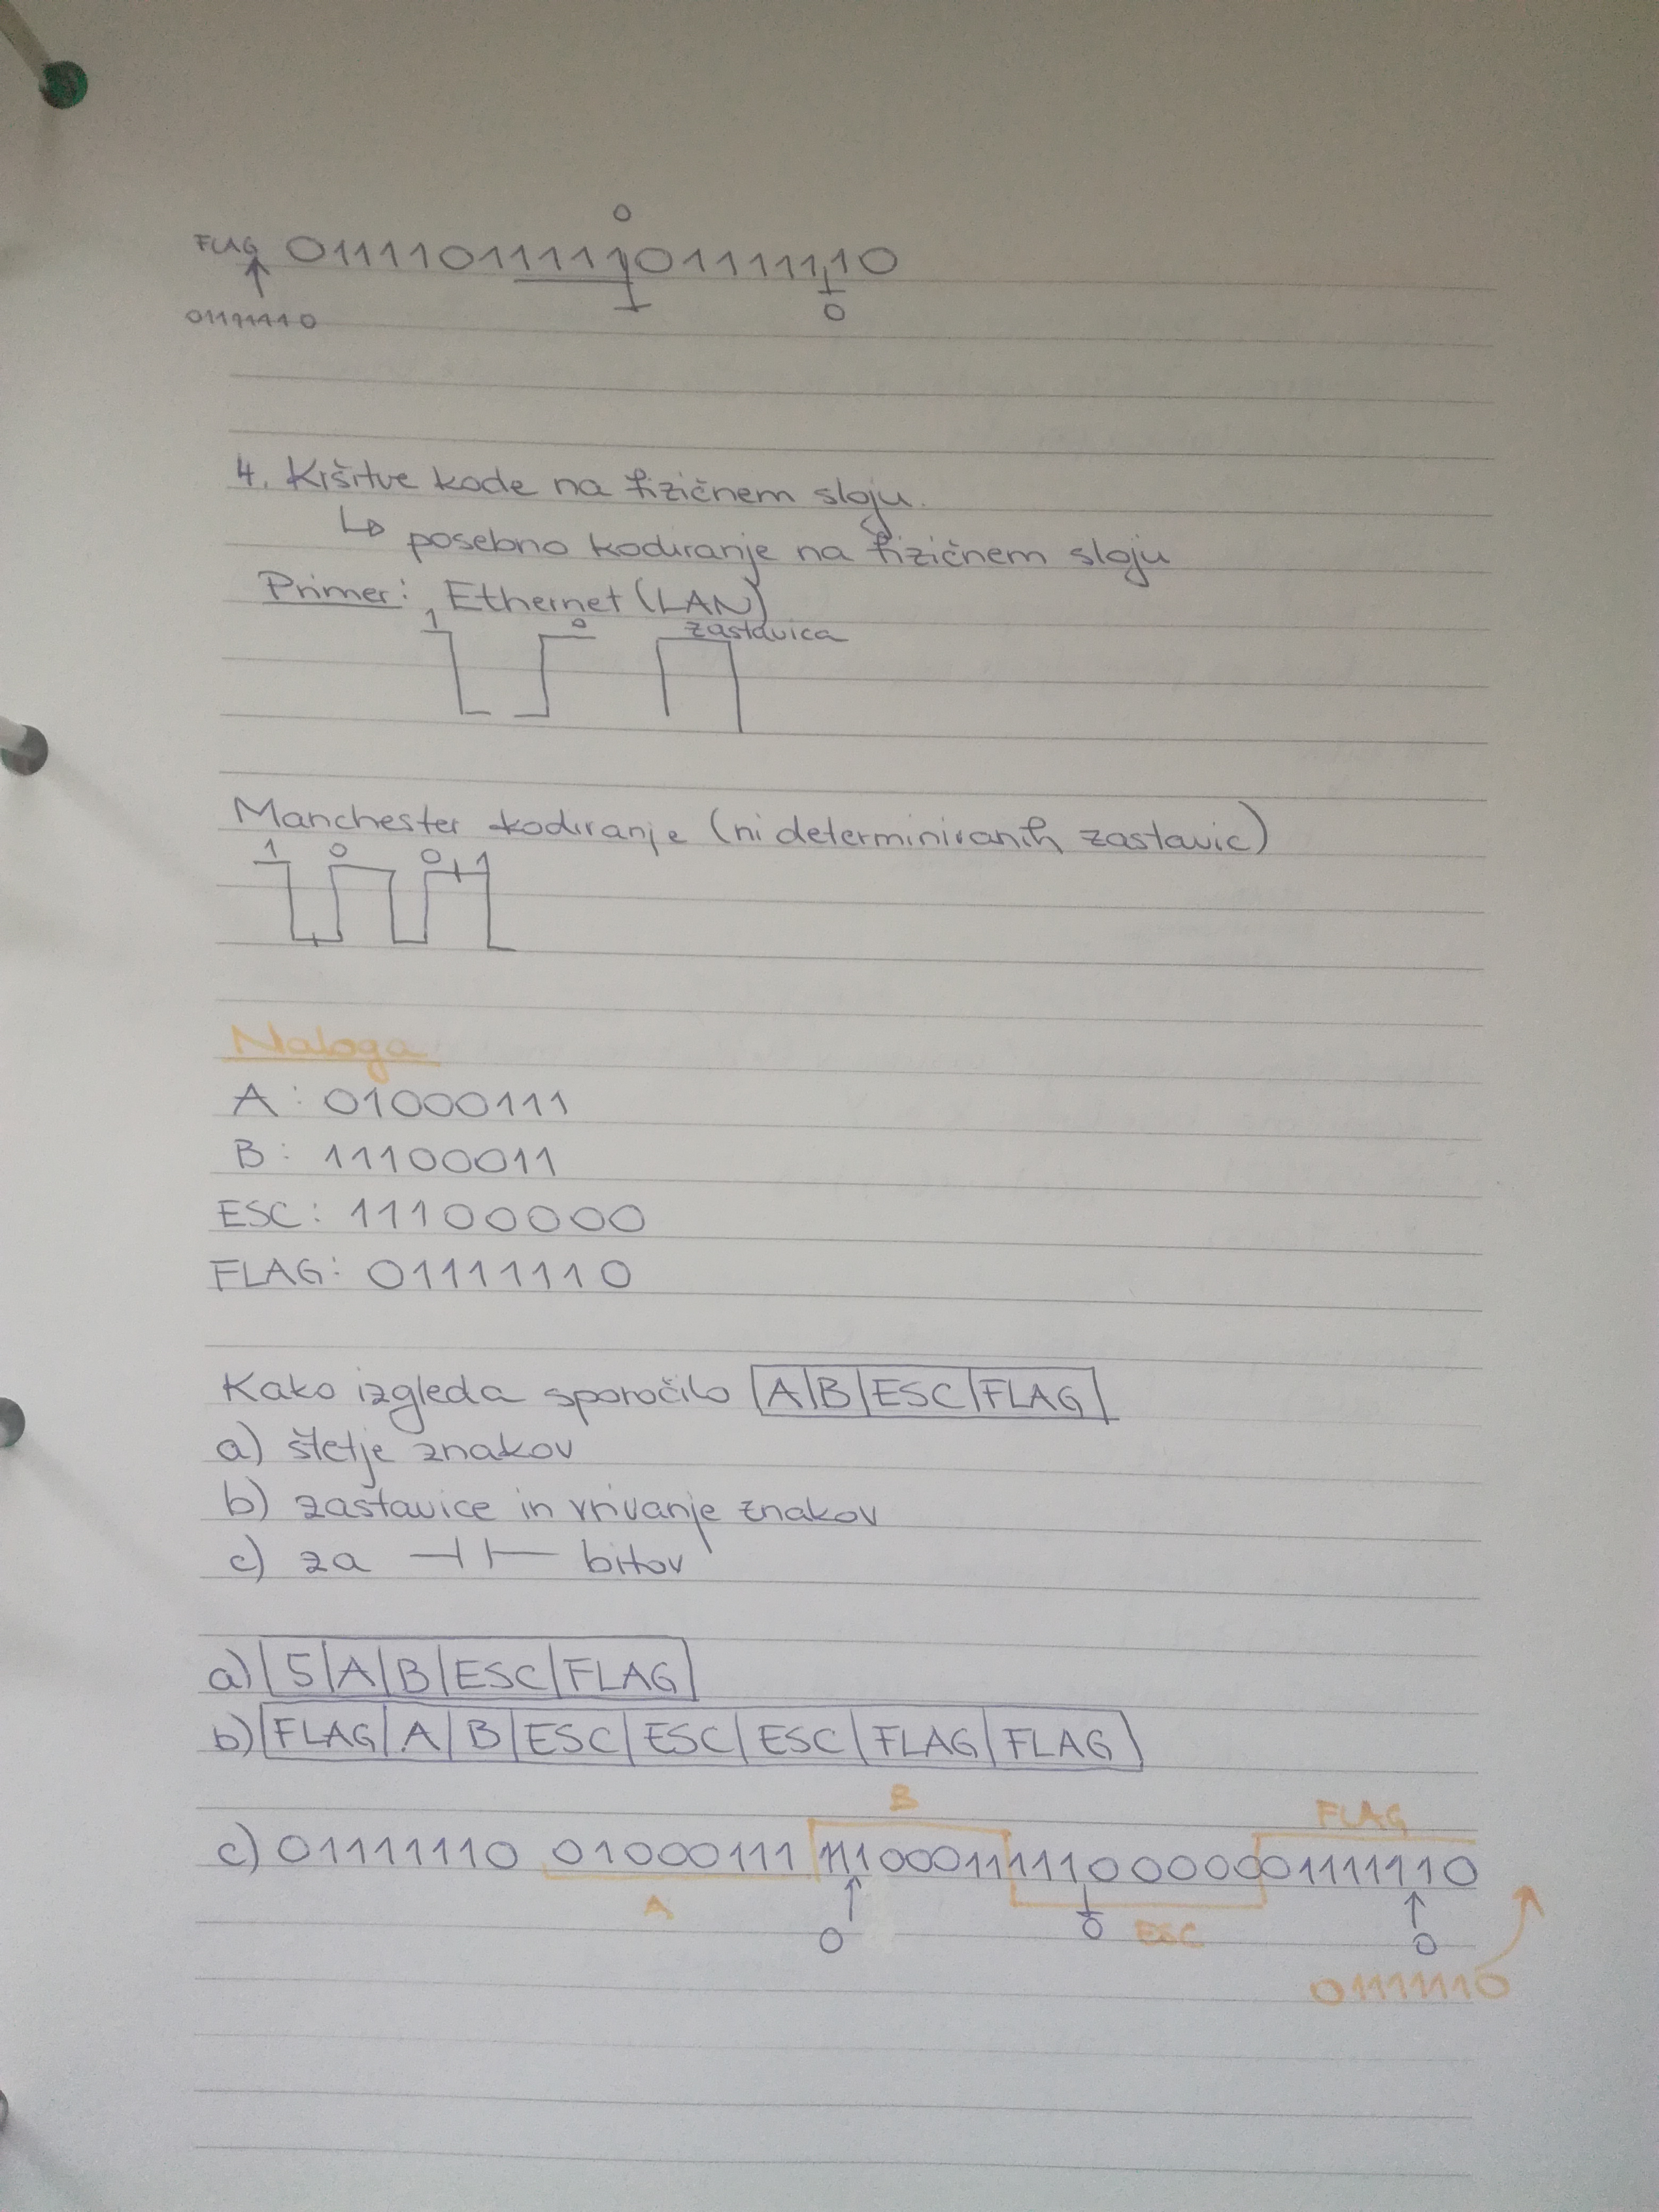 0
FLAG 01111011111101111110
01111110 0
4. Kršitve kode na fizičnem sloju.
↳ posebno kodiranje na fizičnem sloju
Primer: Ethernet (LAN)
1 0 zastavica
Manchester kodiranje (ni determiniranih zastavic)
1 0 0 1
Naloga
A: 01000111
B: 11100011
ESC: 11100000
FLAG: 01111110
Kako izgleda sporočilo |A|B|ESC|FLAG|
a) štetje znakov
b) zastavice in vrivanje znakov
c) za —| |— bitov
a) |5|A|B|ESC|FLAG|
b) |FLAG|A|B|ESC|ESC|ESC|FLAG|FLAG|
B FLAG
c) 01111110 01000111 11100011 11100000 01111110
A 0 0 ESC 0
01111110